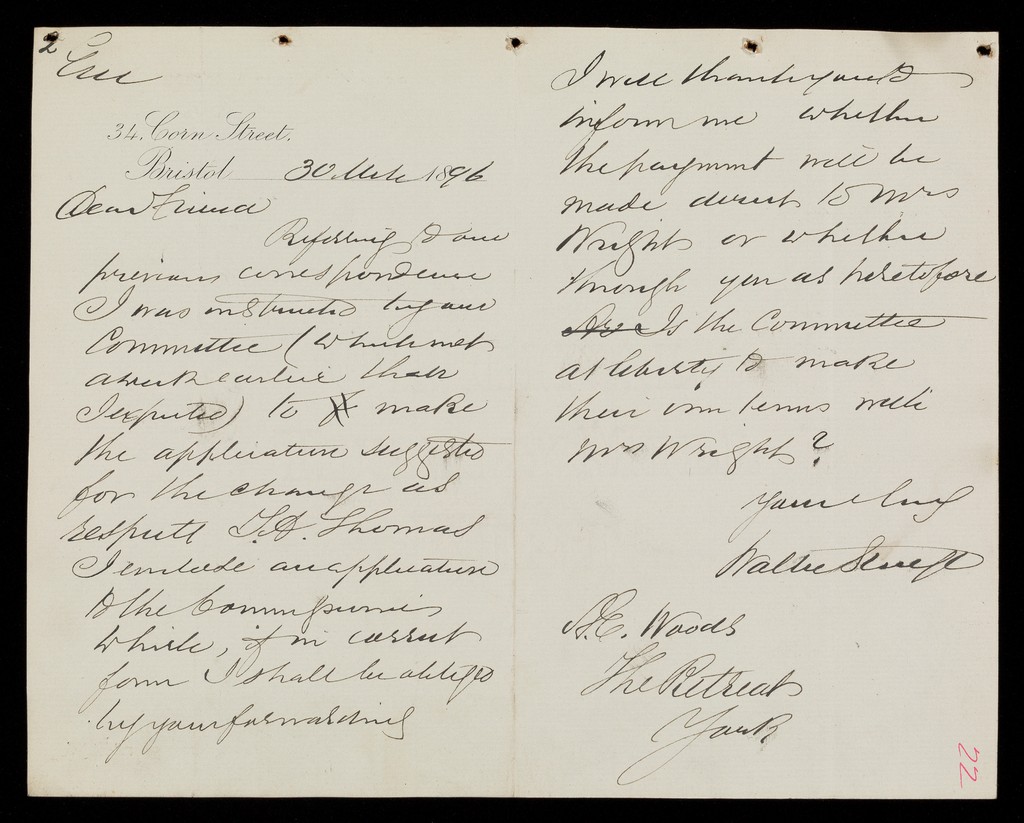 2
Enc
34, Corn Street,
Bristol 30 Mch 1896
Dear Friend
Referring to our
previous correspondence
I was instructed by our
Committee (which met
a week earlier than
I expected) to make
the application suggested
for the change as
respects T.A. Thomas
I enclose an application
to the Commissioners
which, if in correct
form I shall be obliged
by your forwarding
I will thank you to
inform me whether
the payment will be
made direct to Mrs
Wright or whether
through you as heretofore
Are Is the Committee
at liberty to make
their own terms with
Mrs Wright?
Yours truly
Walter Sturge
A.E. Woods
The Retreat
York
22